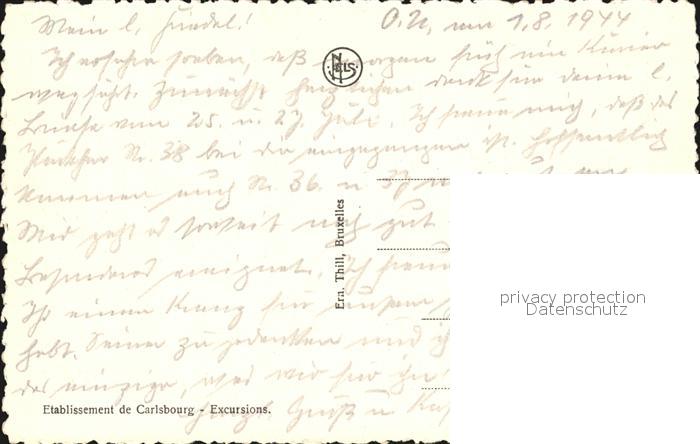 Mein l. Hundel! O.U., am 1.8.1944
Ich erfahre soeben, daß morgen früh ein Kurier
wegfährt. Zunächst herzlichen Dank für deine l.
Briefe vom 25. u. 27. Juli. Ich freue mich, daß das
Päckchen Nr. 38 bei dir eingegangen ist. Hoffentlich
kommen auch Nr. 36. u. 37
Mir geht es soweit noch gut
Besonderes ereignet. Ich
Ihr einen Kranz für unsern
habt. Seiner zu gedenken und
das einzige, was wir für ihn
Herzl. Gruß u. Kuß
NELS
Ern. Thill, Bruxelles
Etablissement de Carlsbourg - Excursions.
privacy protection
Datenschutz